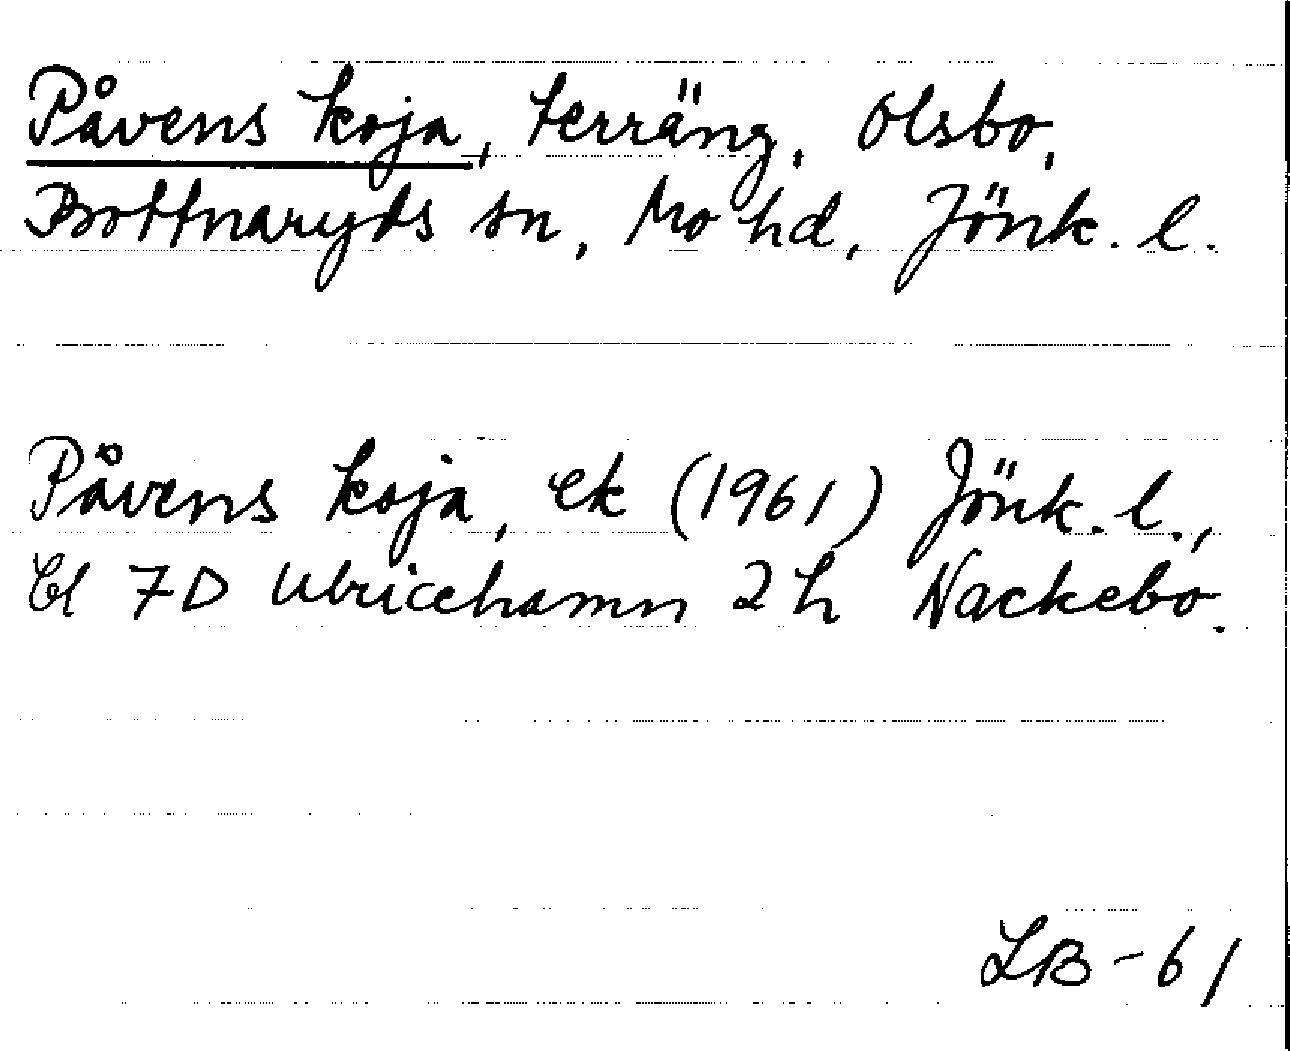 Påvens koja, terräng, Olsbo,
Bottnaryds sn, Mo hd, Jönk. l.
Påvens koja, ek (1961) Jönk. l.,
bl 7D Ulricehamn 2h Nackebo.
LB-61